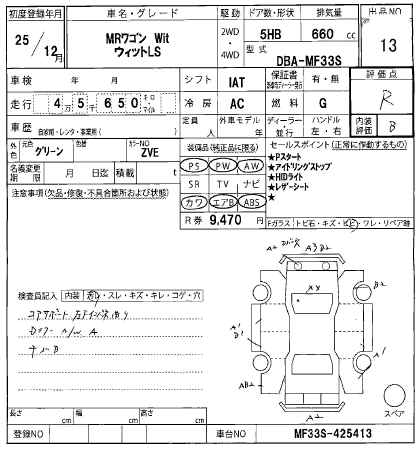 初度登録年月
車名・グレード
駆動
ドア数・形状
排気量
出品NO
25/12月
MRワゴン Wit
ウィットLS
2WD
・
4WD
5HB
660 cc
型式
DBA-MF33S
13
車検 年 月
シフト
IAT
保証書
有・無
評価点
R
走行 4万5千650 キロ・マイル
冷房
AC
燃料
G
車歴
自家用・レンタ・事業用( )
定員
人
外車モデル
年
ディーラー
並行
ハンドル
左・右
内装評価
B
外色
元色
グリーン
色替
カラーNO
ZVE
名義変更期限
月 日迄
積載
t
装備品(純正品に限る)
PS PW AW
SR TV ナビ
カワ エアB ABS
R券 9,470 円
セールスポイント(正常に作動するもの)
★Pスタート
★アイドリングストップ
★HIDライト
★レザーシート
★
注意事項(欠品・修復・不具合箇所および状態)
Fガラス トビ石・キズ・ヒビ・ワレ・リペア跡
検査員記入
内装
・スレ・キズ・キレ・コゲ・穴
A/W A
B
A2
A3 B2
XX
B2
A1
B1
A1
AB2
A2
スペア
長さ cm
幅 cm
高さ cm
登録NO
車台NO
MF33S-425413